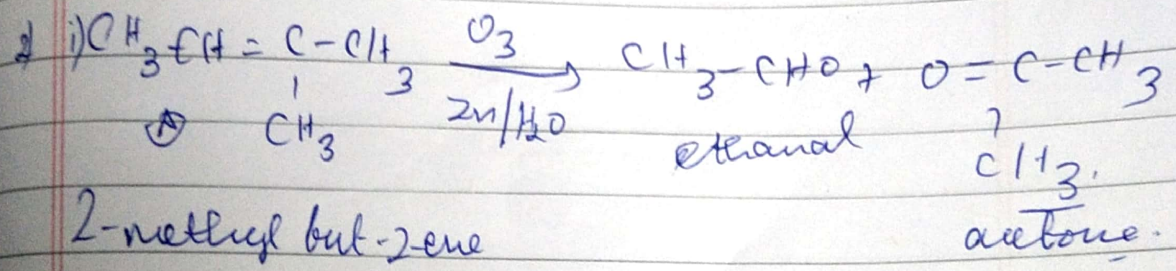 i) CH3CH = C-CH3 O3 Zn/H2O CH3-CHO + O = C-CH3
A CH3 ethanal CH3.
2-methyl but-2-ene acetone.